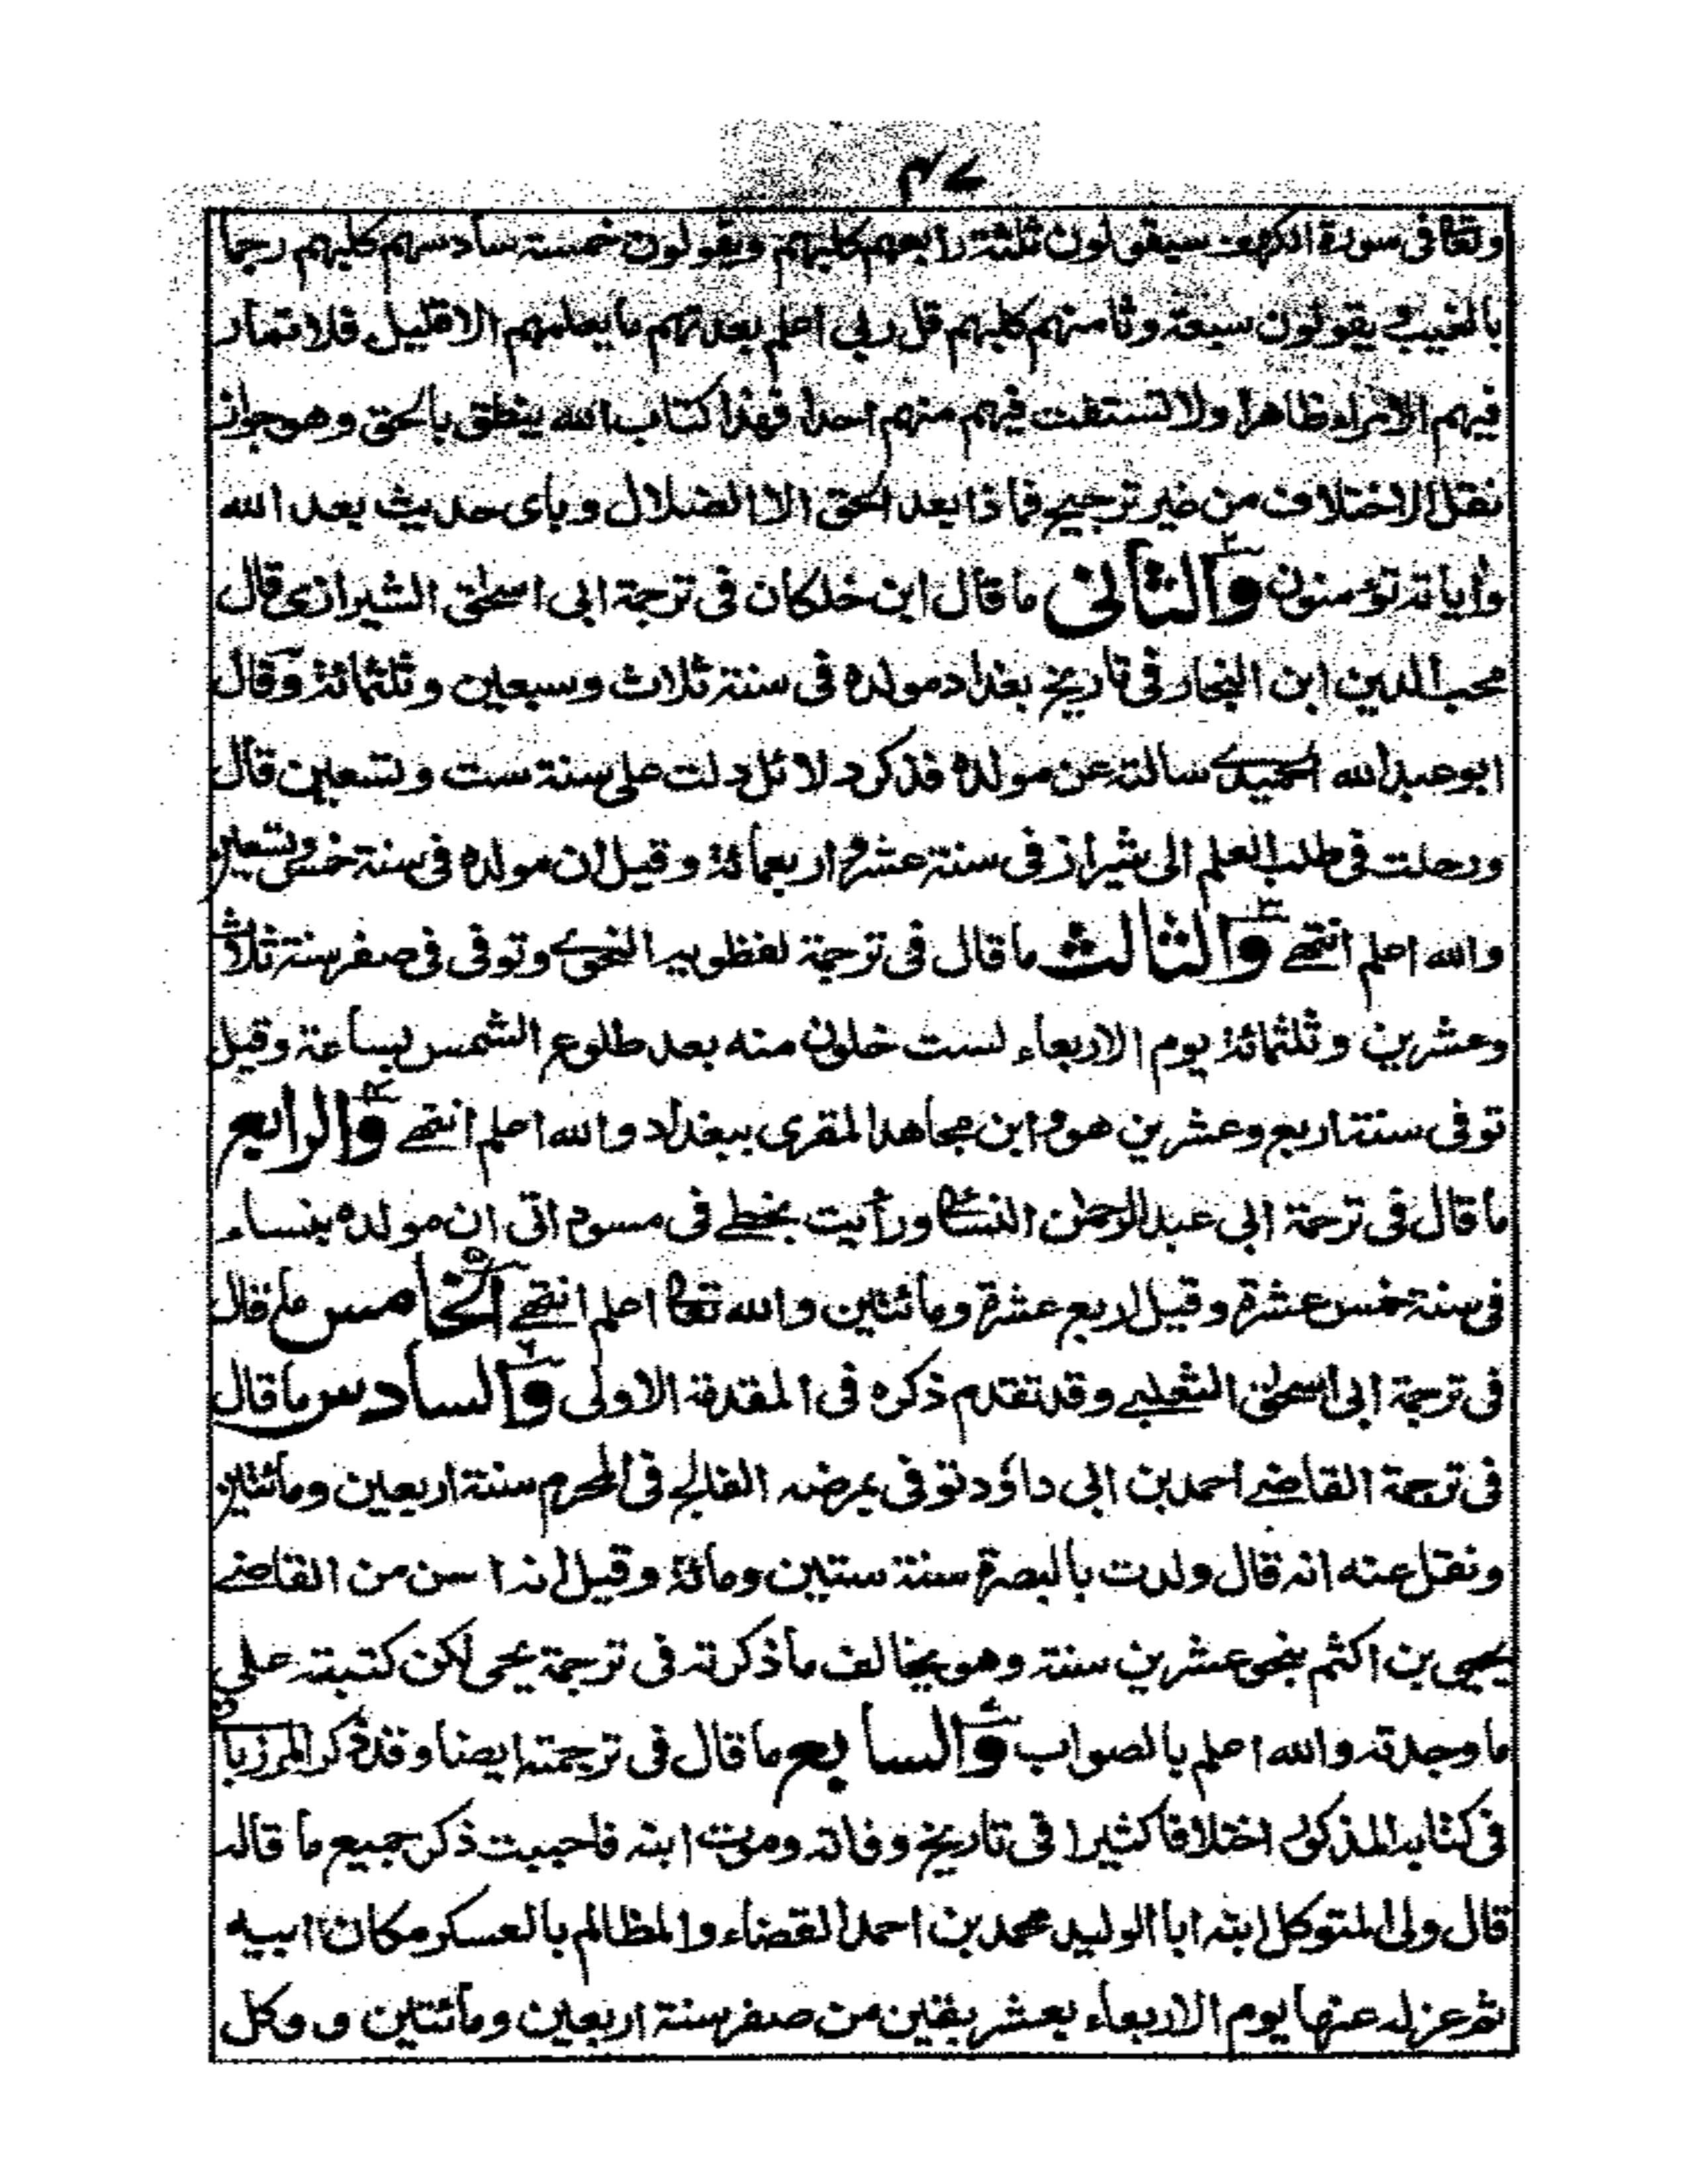 ٤٧
وتعا فى سورة الكهف سيقولون ثلثة رابعهم كلبهم ويقولون خمسة سادسهم كلبهم رجما
بالغيب ويقولون سبعة وثامنهم كلبهم قل ربى اعلم بعدتهم ما يعلمهم الا قليل فلا تمار
فيهم الا مراء ظاهرا ولا تستفت فيهم منهم احدا فهذا كتاب الله ينطق بالحق وهو جواز
نقل الاختلاف من غير ترجيح فماذا بعد الحق الا الضلال وباى حديث بعد الله
واياته تؤمنون والثانى ٢ ما قال ابن خلكان فى ترجمة ابى اسحق الشيرازى قال
محب الدين ابن النجار فى تاريخ بغداد مولده فى سنة ثلاث وسبعين وثلثمائة وقال
ابو عبد الله الحميدے سالته عن مولده فذكر دلائل دلت على سنة ست وتسعين قال
ورحلت فى طلب العلم الى شيراز فى سنة عشر واربعمائة وقيل ان مولده فى سنة خمس وتسعين
والله اعلم انتهے والثالث ٣ ما قال فى ترجمة نفطويه النحوے وتوفى فى صفر سنة ثلاث
وعشرين وثلثمائة يوم الاربعاء لست خلون منه بعد طلوع الشمس بساعة وقيل
توفى سنة اربع وعشرين هو وابن مجاهد المقرى ببغداد والله اعلم انتهے والرابع ٤
ما قال فى ترجمة ابى عبد الرحمن النسائى ورأيت بخطے فى مسوداتى ان مولده بنساء
فى سنة خمس عشرة وقيل اربع عشرة ومائتين والله تعا اعلم انتهے الخامس ٥ ما قال
فى ترجمة ابى اسحق الثعلبے وقد تقدم ذكره فى المقدمة الاولى والسادس ٦ ما قال
فى ترجمة القاضے احمد بن ابى داؤد توفى بمرضه الفالج فى المحرم سنة اربعين ومائتين
ونقل عنه انه قال ولدت بالبصرة سنة ستين ومائة وقيل انه اسن من القاضے
يحيى بن اكثم بنحو عشرين سنة وهو يخالف ما ذكرته فى ترجمة يحى لكن كتبته على
ما وجدته والله اعلم بالصواب والسابع ٧ ما قال فى ترجمته ايضا وقد ذكر المرزبانى
فى كتابه المذكور اختلافا كثيرا فى تاريخ وفاته وموت ابنه فاحببت ذكر جميع ما قاله
قال ولى المتوكل ابنه ابا الوليد محمد بن احمد القضاء والمظالم بالعسكر مكان ابيه
ثم عزله عنها يوم الاربعاء بعشر بقين من صفر سنة اربعين ومائتين و وكل